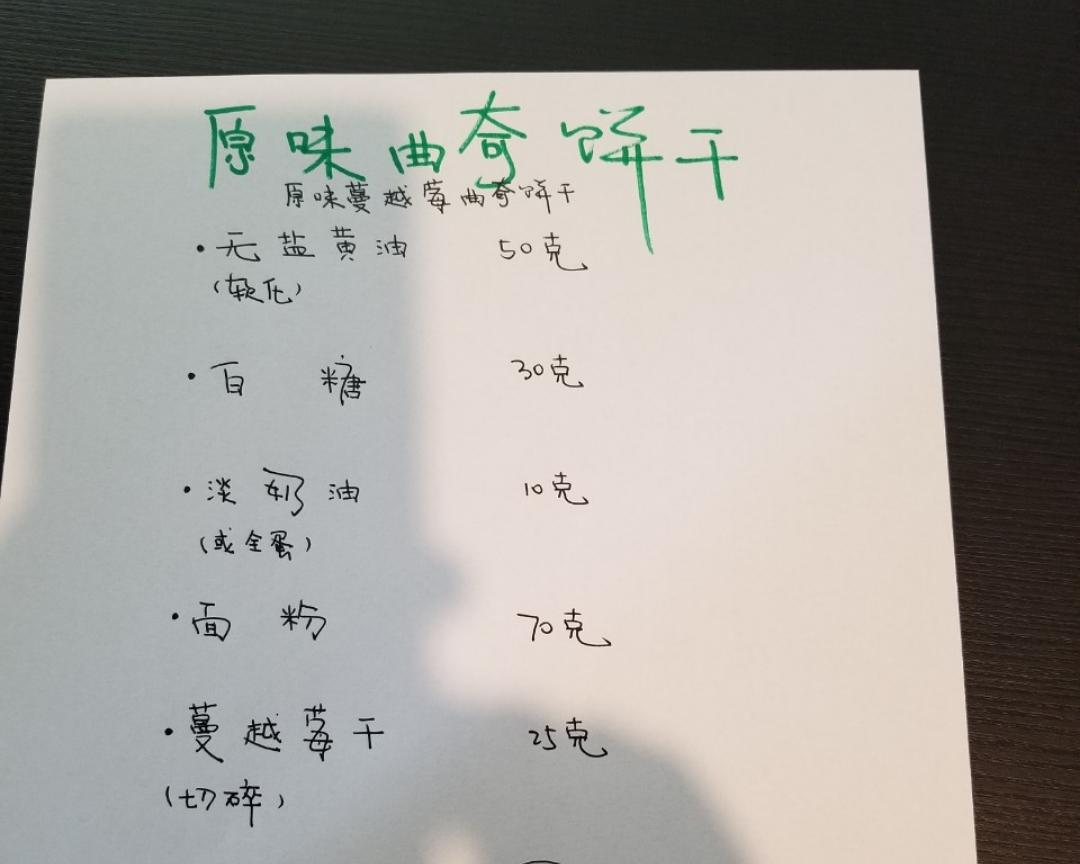 原味曲奇饼干
原味蔓越莓曲奇饼干
·无盐黄油 50克
(软化)
·白糖 30克
·淡奶油 10克
(或全蛋)
·面粉 70克
·蔓越莓干 25克
(切碎)